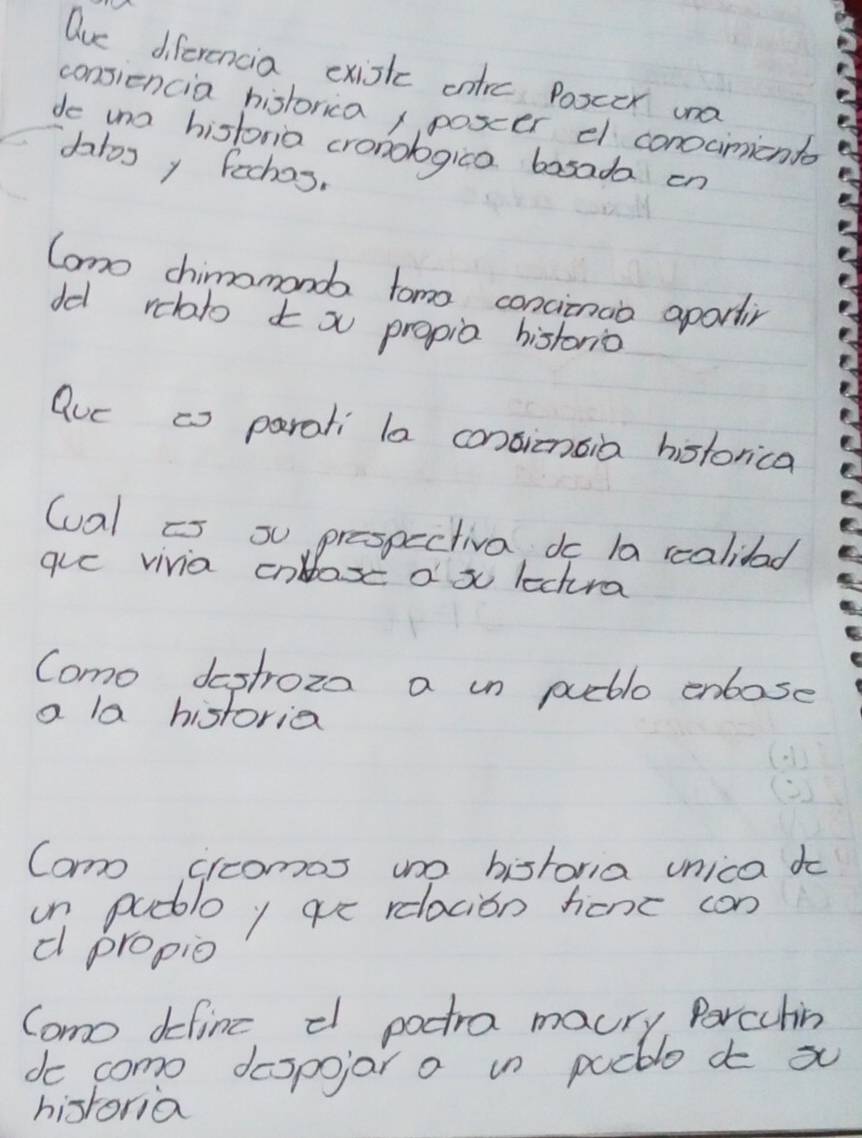 Que diferencia existe entre Poseer una
consiencia historica y poseer el conocimiento
de una historia cronologica basada en
datos y fechas.
Como chimamanda toma conciencia apartir
del relato de su propia historia
Que es parati la consiensia historica
Cual es su prespectiva de la realidad
que vivia enbase a su lectura
Como destroza a un pueblo enbase
a la historia
Como creamos una historia unica de
un pueblo y que relación tiene con
el propio
Como define el poetra maury Parcutin
de como despojar a un pueblo de su
historia